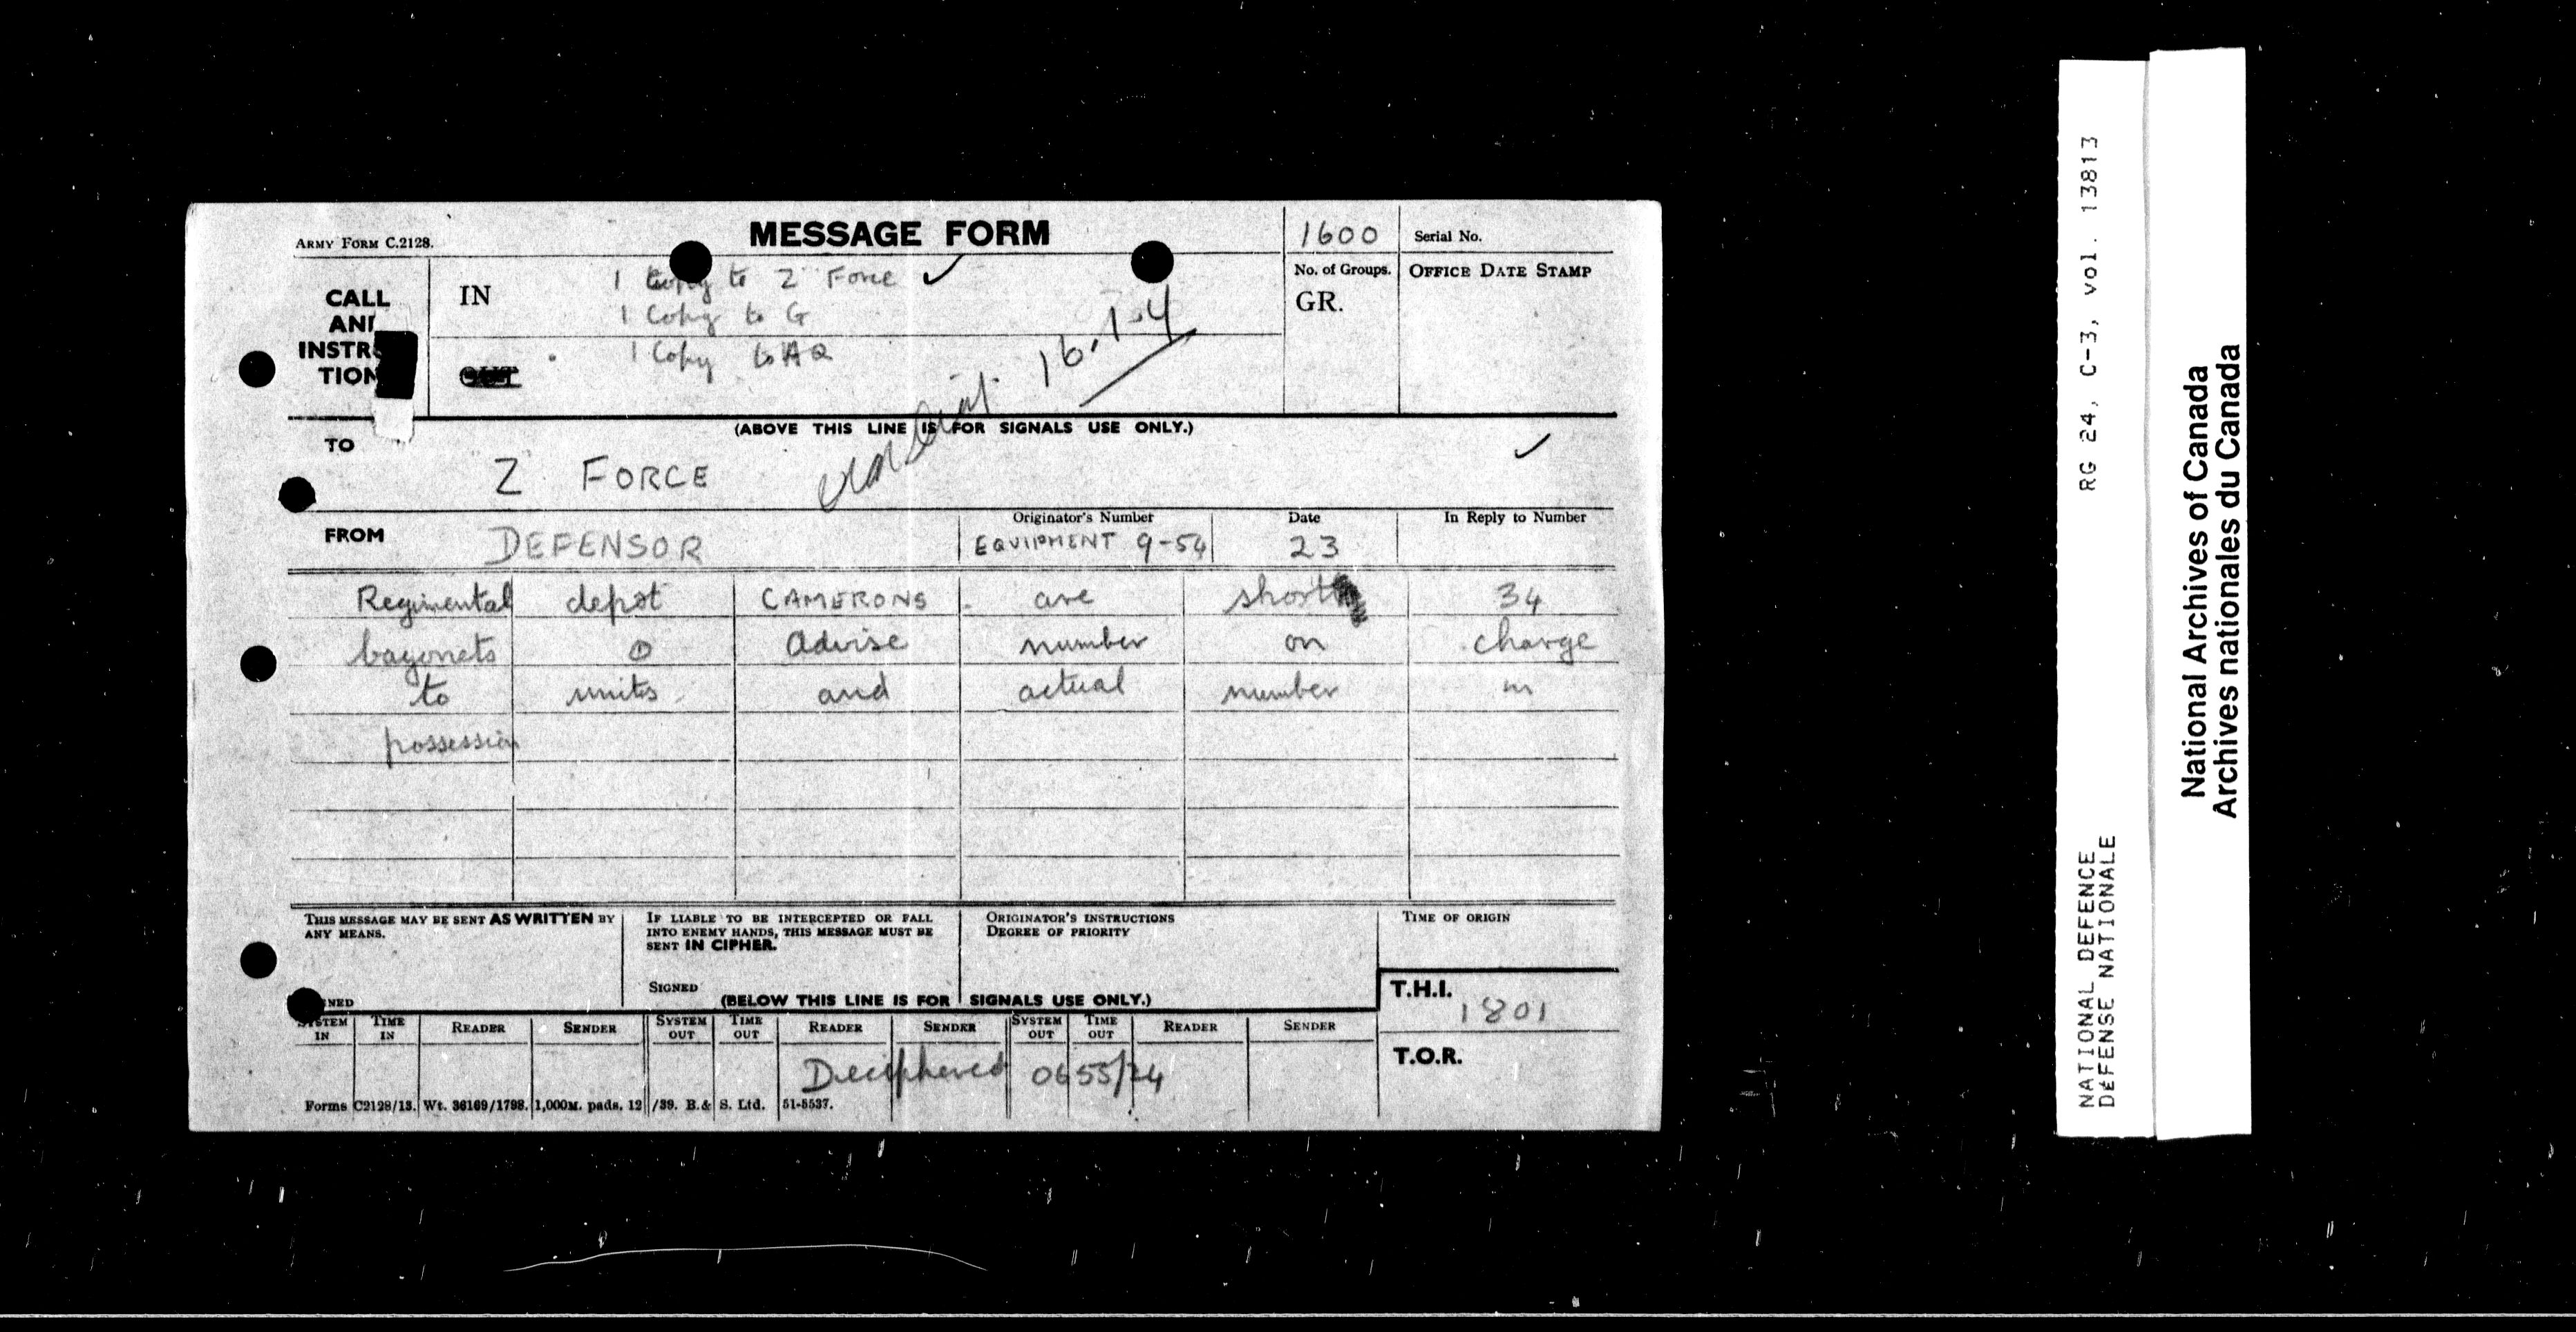 ARMY FORM C.2128.
MESSAGE FORM
1600
Serial No.
CALL
AND
INSTRUC
TIONS
IN
1 Copy to Z Force ✓
1 Copy to G
1 Copy to AQ
OUT
16.1-4
No. of Groups.
GR.
OFFICE DATE STAMP
(ABOVE THIS LINE IS FOR SIGNALS USE ONLY.)
TO
Z FORCE
FROM
DEFENSOR
Originator's Number
EQUIPMENT 9-54
Date
23
In Reply to Number
Regimental depot CAMERONS are short 34
bayonets O Advise number on charge
to units and actual number in
possession
THIS MESSAGE MAY BE SENT AS WRITTEN BY
ANY MEANS.
IF LIABLE TO BE INTERCEPTED OR FALL
INTO ENEMY HANDS, THIS MESSAGE MUST BE
SENT IN CIPHER.
SIGNED
ORIGINATOR'S INSTRUCTIONS
DEGREE OF PRIORITY
TIME OF ORIGIN
(BELOW THIS LINE IS FOR SIGNALS USE ONLY.)
T.H.I.
1801
T.O.R.
SYSTEM IN TIME IN READER SENDER SYSTEM OUT TIME OUT READER SENDER SYSTEM OUT TIME OUT READER SENDER
Deciphered 0655/24
Forms C2128/13. Wt. 36169/1798. 1,000M. pads. 12/39. B.& S. Ltd. 51-5537.
RG 24, C-3, vol. 13813
NATIONAL DEFENCE
DÉFENSE NATIONALE
National Archives of Canada
Archives nationales du Canada